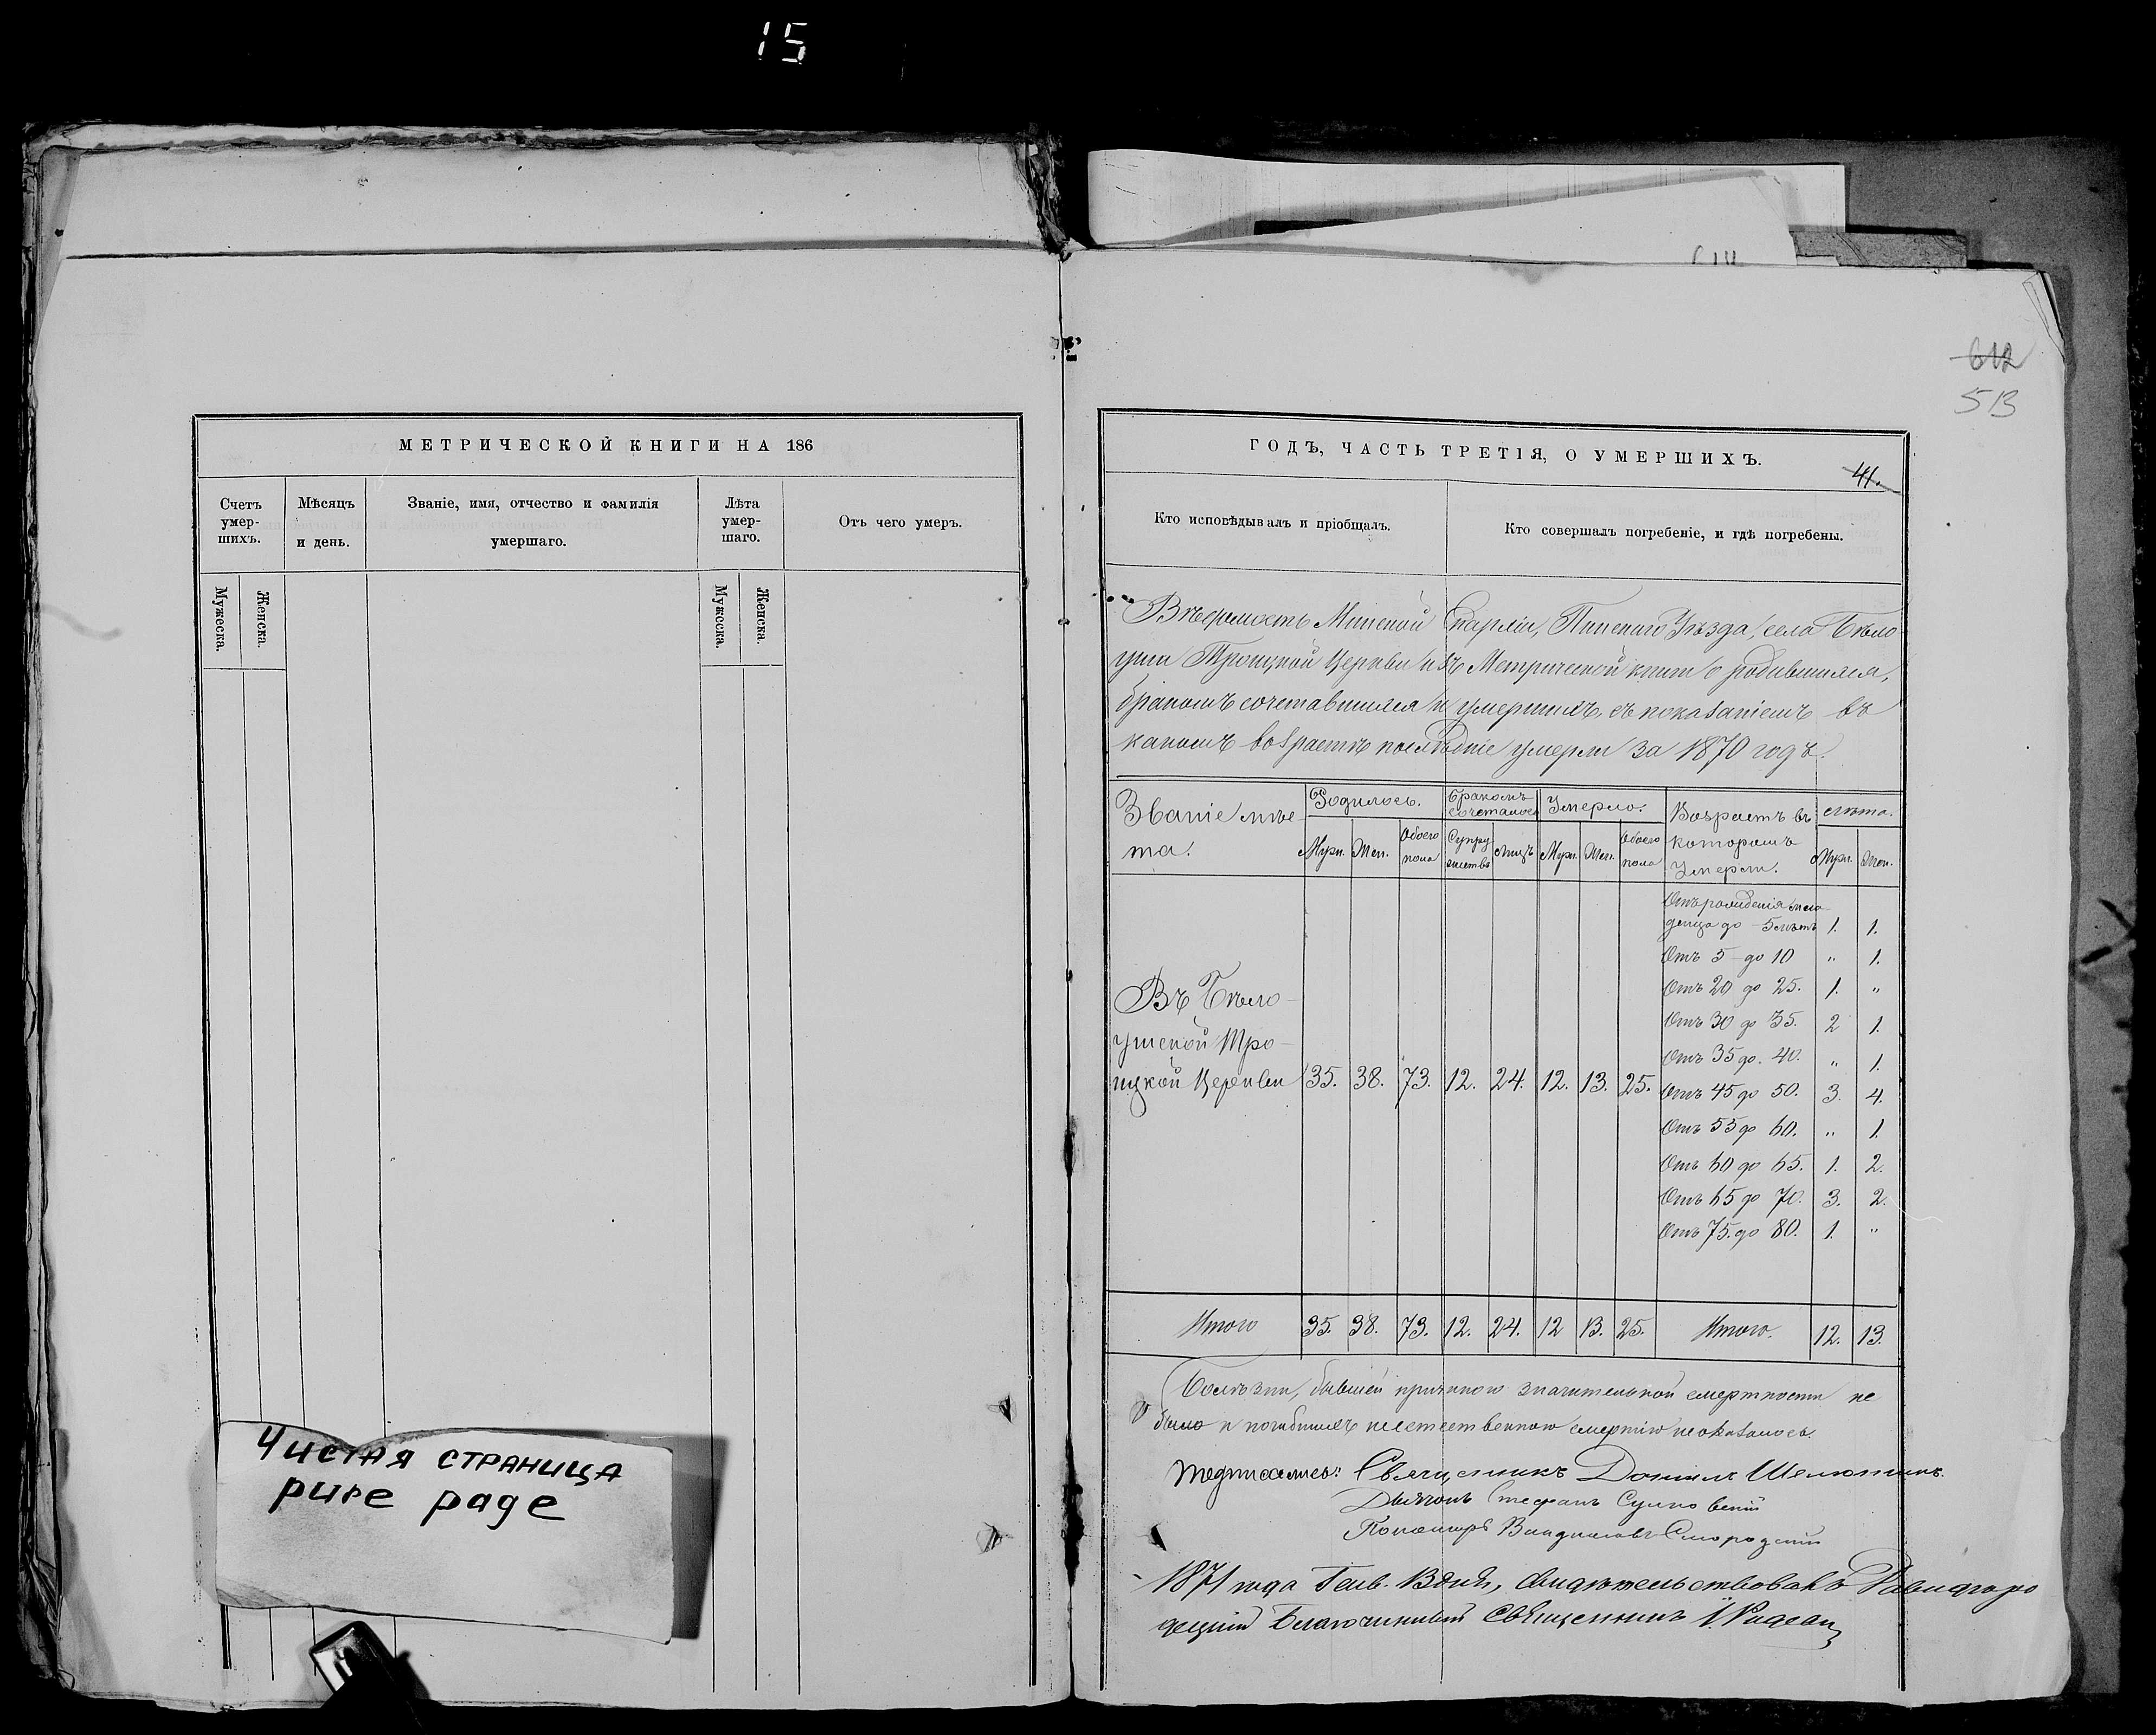 15
612
513
МЕТРИЧЕСКОЙ КНИГИ НА 186
Счетъ умер-шихъ.
Мѣсяцъ и день.
Званіе, имя, отчество и фамилія умершаго.
Лѣта умер-шаго.
Отъ чего умеръ.
Мужеска.
Женска.
Мужеска.
Женска.
Чистая страница
pure page
ГОДЪ, ЧАСТЬ ТРЕТІЯ, О УМЕРШИХЪ.
41.
Кто исповѣдывалъ и пріобщалъ.
Кто совершалъ погребеніе, и гдѣ погребены.
Вѣдомость Минской Епархіи, Пинскаго Уѣзда, села Бѣло
уши Троицкой Церкви изъ Метрической книги о родившихся,
бракомъ сочетавшихся и умершихъ, съ показаніемъ въ
какомъ возрастѣ послѣдніе умерли за 1870 годъ.
Званіе мѣс
та.
Родилось.
Бракомъ сочеталось
Умерло.
Возрастъ въ
которомъ
Умерли.
Муж. Жен. Обоего пола
Супру жествъ лицъ
Муж. Жен. Обоего пола
Муж. Жен.
Въ Бѣло-
ушской Тро-
ицкой Церкви 35. 38. 73. 12. 24. 12. 13. 25.
Отъ рожденія мла
денца до 5 лѣтъ 1. 1.
Отъ 5 до 10 „ 1.
Отъ 20 до 25. 1. „
Отъ 30 до 35. 2 1.
Отъ 35 до 40. „ 1.
Отъ 45 до 50. 3. 4.
Отъ 55 до 60. „ 1.
Отъ 60 до 65. 1. 2.
Отъ 65 до 70. 3. 2.
Отъ 75. до 80. 1. „
Итого 35. 38. 73. 12. 24. 12 13. 25. Итого. 12. 13.
Болѣзни, бывшей причиною значительной смертности не
было и погибшихъ неестественною смертію не оказалось.
Подписались: Священникъ Даніилъ
Дьячокъ Стефанъ
Пономарь
1871 года Генв. 13 дня, свидѣтельствовалъ Давидгоро
децкій Благочинный Священникъ І.